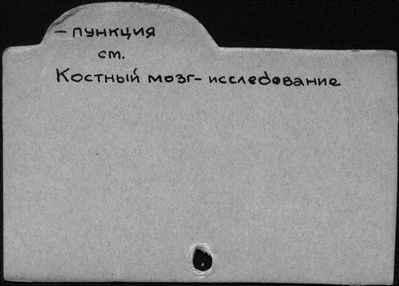 – пункция
см.
Костный мозг – исследование